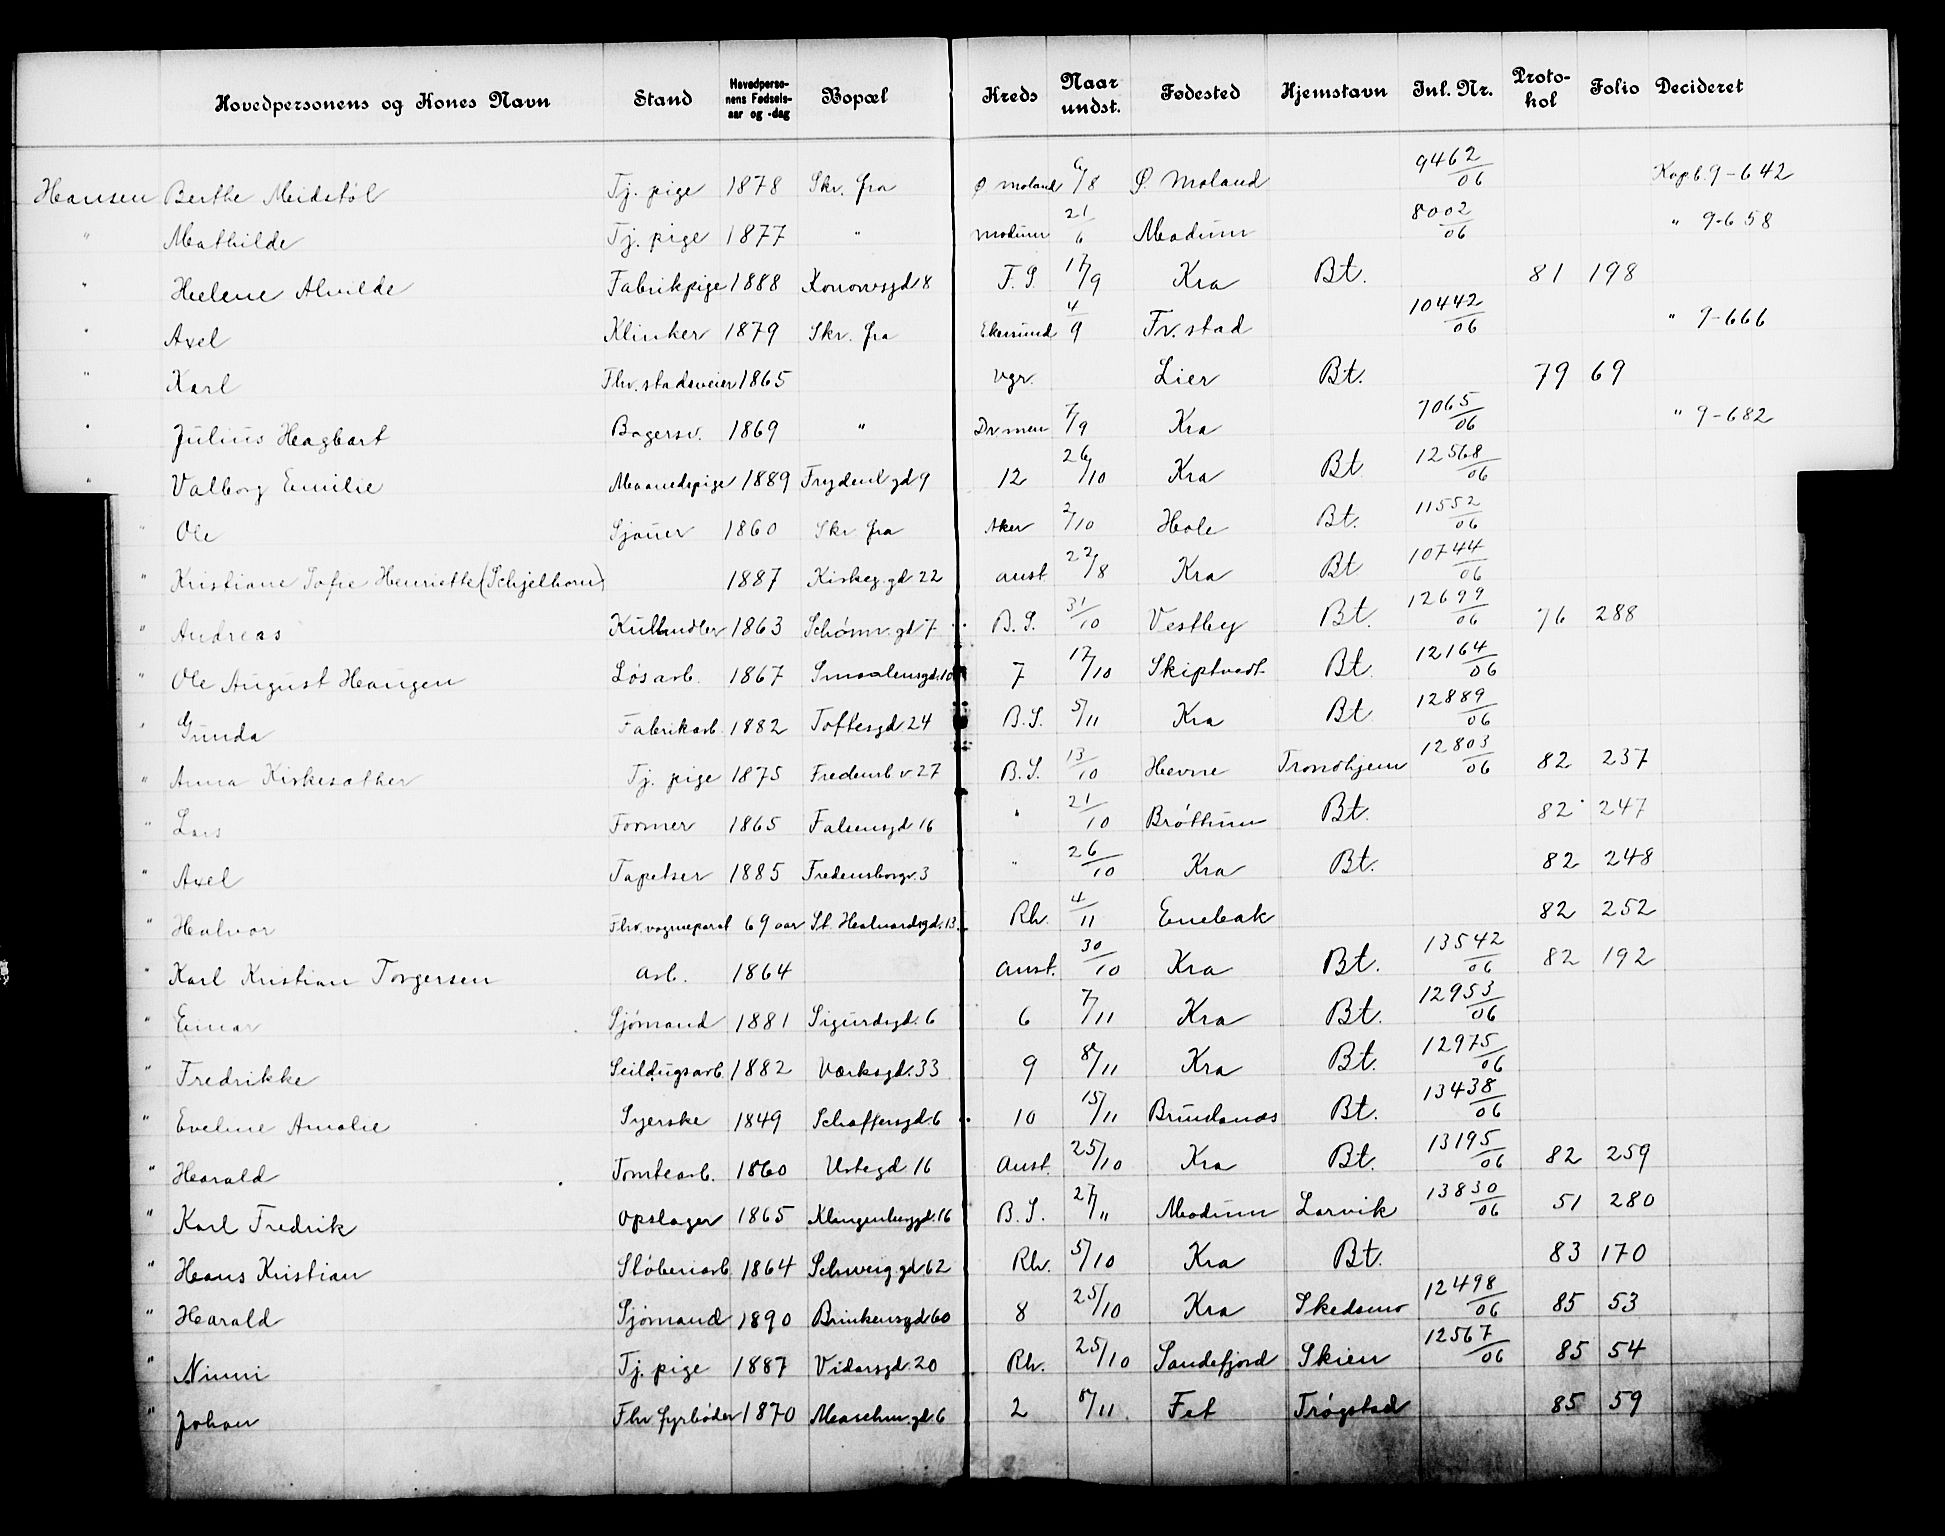 Hovedpersonens og Kones Navn Stand Hovedpersonens Fødselsaar og -dag Bopæl Kreds Naar undst. Fødested Hjemstavn Inl. Nr. Protokol Folio Decideret
Hansen Berthe Meidstøl Tj. pige 1878 Skr. fra Ø Moland 6/8 Ø. Moland 9462/06 Kopb. 9-642
" Mathilde Tj. pige 1877 " Modum 21/6 Modum 8002/06 " 9-658
" Helene Alvilde Fabrikpige 1888 Kononvsgd 8 F. S. 17/9 Kra Bt. 81 198
" Axel Klinker 1879 Skr. fra Ekersund 4/9 Fr. stad 10442/06 " 9-666
" Karl Fhv. stadsveier 1865 Vgr. Lier Bt. 79 69
" Julius Hagbart Bagersv. 1869 " Drmen 7/9 Kra 7065/06 " 9-682
" Valborg Emilie Maanedspige 1889 Frydenl gd 9 12 26/10 Kra Bt 12568/06
" Ole Sjauer 1860 Skr. fra Aker 2/10 Hole Bt. 11552/06
" Kristiane Sofie Henriette (Schjelhorn) 1887 Kirkeg. gd 22 anst 22/8 Kra Bt 10744/06
" Andreas Kulhandler 1863 Schønn. gd 7 B. S. 31/10 Vestby Bt. 12699/06 76 288
" Ole August Haugen Løsarb. 1867 Smaalensgd. 10 7 17/10 Skiptvedt Bt. 12164/06
" Gunda Fabrikarb. 1882 Toftesgd 24 B. S. 5/11 Kra Bt 12889/06
" Anna Kirkesæther Tj. pige 1875 Fredensb v 27 B. S. 13/10 Hevne Trondhjem 12803/06 82 237
" Lars Former 1865 Falsensgd 16 " 21/10 Brøttum Bt. 82 247
" Axel Tapetser 1885 Fredensborgv. 3 " 26/10 Kra Bt. 82 248
" Halvor Fhv. vognmperat 69 aar St. Halvardsgd. 13 Rh. 4/11 Enebak 82 252
" Karl Kristian Torgersen arb. 1864 anst. 30/10 Kra Bt. 13542/06 82 192
" Einar Sjømand 1881 Sigurdsgd. 6 6 7/11 Kra Bt. 12953/06
" Fredrikke Seildugsarb. 1882 Værksgd. 33 9 8/11 Kra Bt. 12975/06
" Eveline Amalie Syerske 1849 Schaffersgd. 6 10 15/11 Brundanæs Bt. 13438/06
" Harald Tomtearb. 1860 Urtegd. 16 anst. 25/10 Kra Bt. 13195/06 82 259
" Karl Fredrik Opslager 1865 Klingenberggd. 16 B. S. 27/11 Modum Larvik 13830/06 51 280
" Hans Kristian Støberiarb. 1864 Schweig. gd 62 Rh. 5/10 Kra Bt. 83 170
" Harald Sjømand 1890 Brinkensgd 60 8 25/10 Kra Skedsmo 12498/06 85 53
" Ninni Tj. pige 1887 Vidarsgd. 20 Rh. 25/10 Sandefjord Skien 12567/06 85 54
" Johan Fhv fyrbøder 1870 Maschm. gd. 6 2 8/11 Fet Trøgstad 85 59